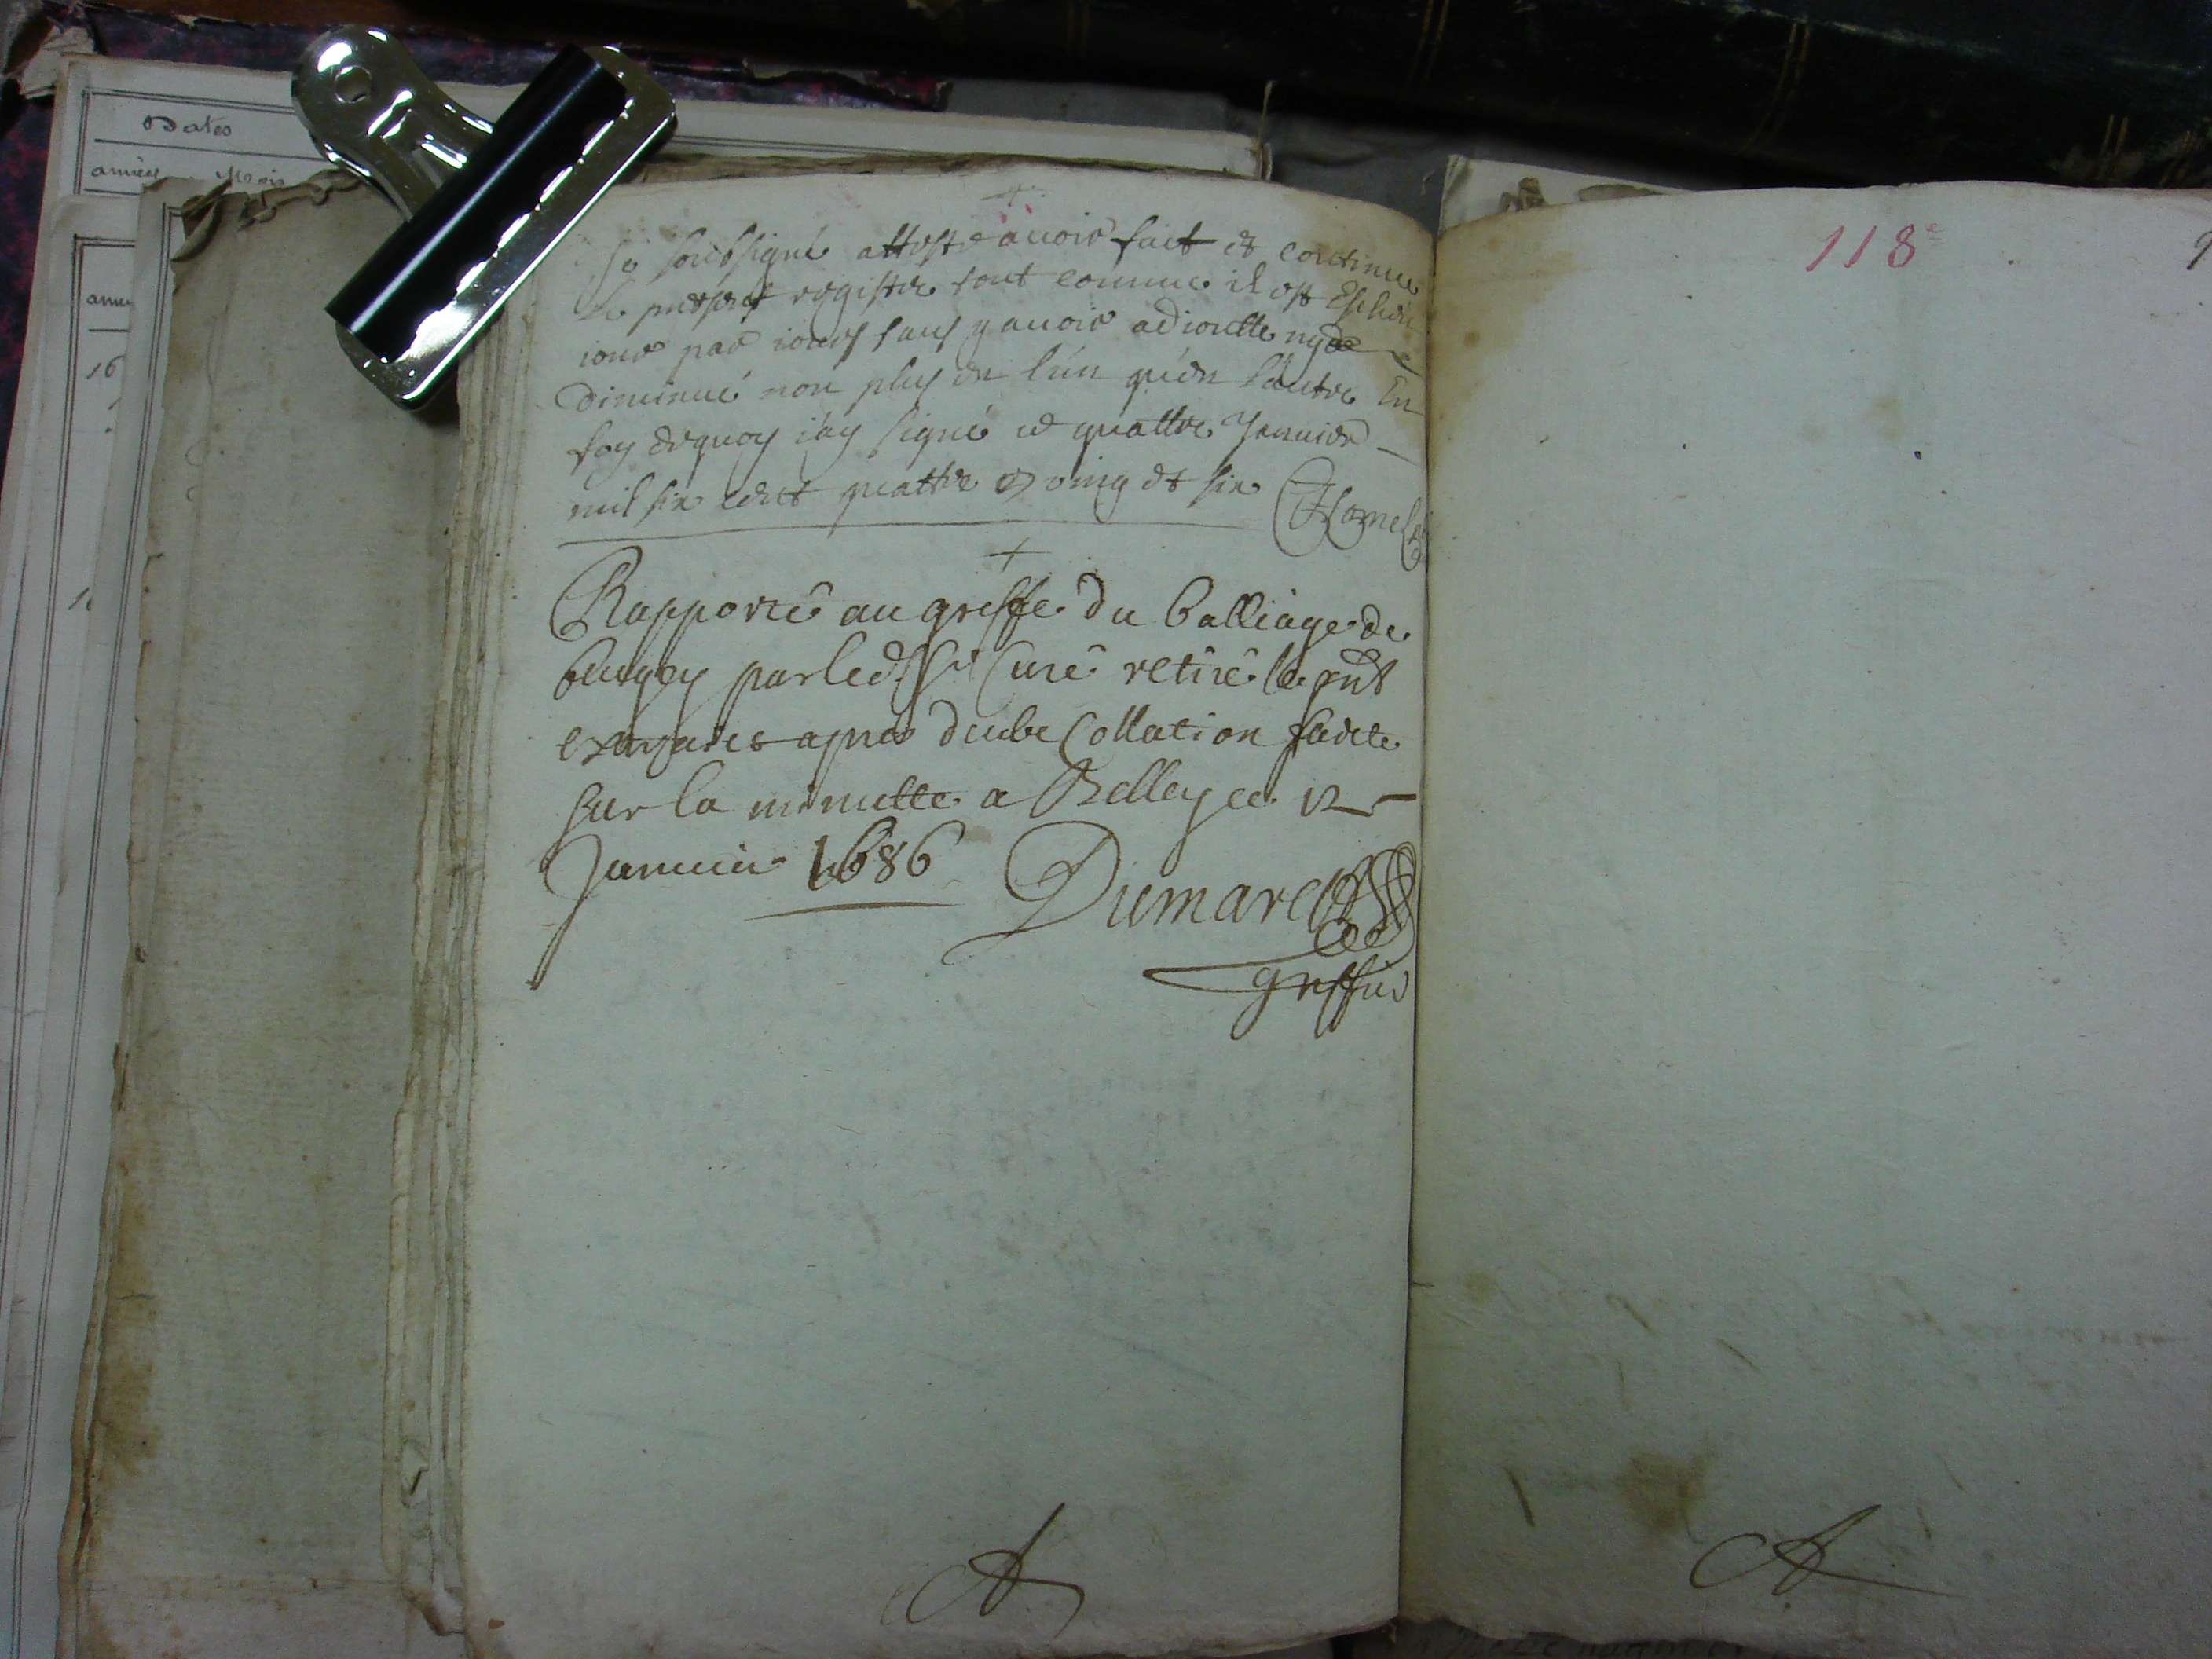 Dates
années Mois
16
Je soubsigné atteste auoir fait et continué
le present registre tout comme il est Escheu
iour par iours sans y auoir adioutté ny de
diminué non plus de l'un que de l'autre En
foy dequoy i'ay signé ce quattre Januier
mil six cent quattre vingt et six
Rapporté au greffe du balliage de
beugey par led. Sr Curé retiré le pnt
extraict apres deube Collation faicte
sur la minutte a Belley ce 12
Januier 1686 Dumarest
greffier
118e